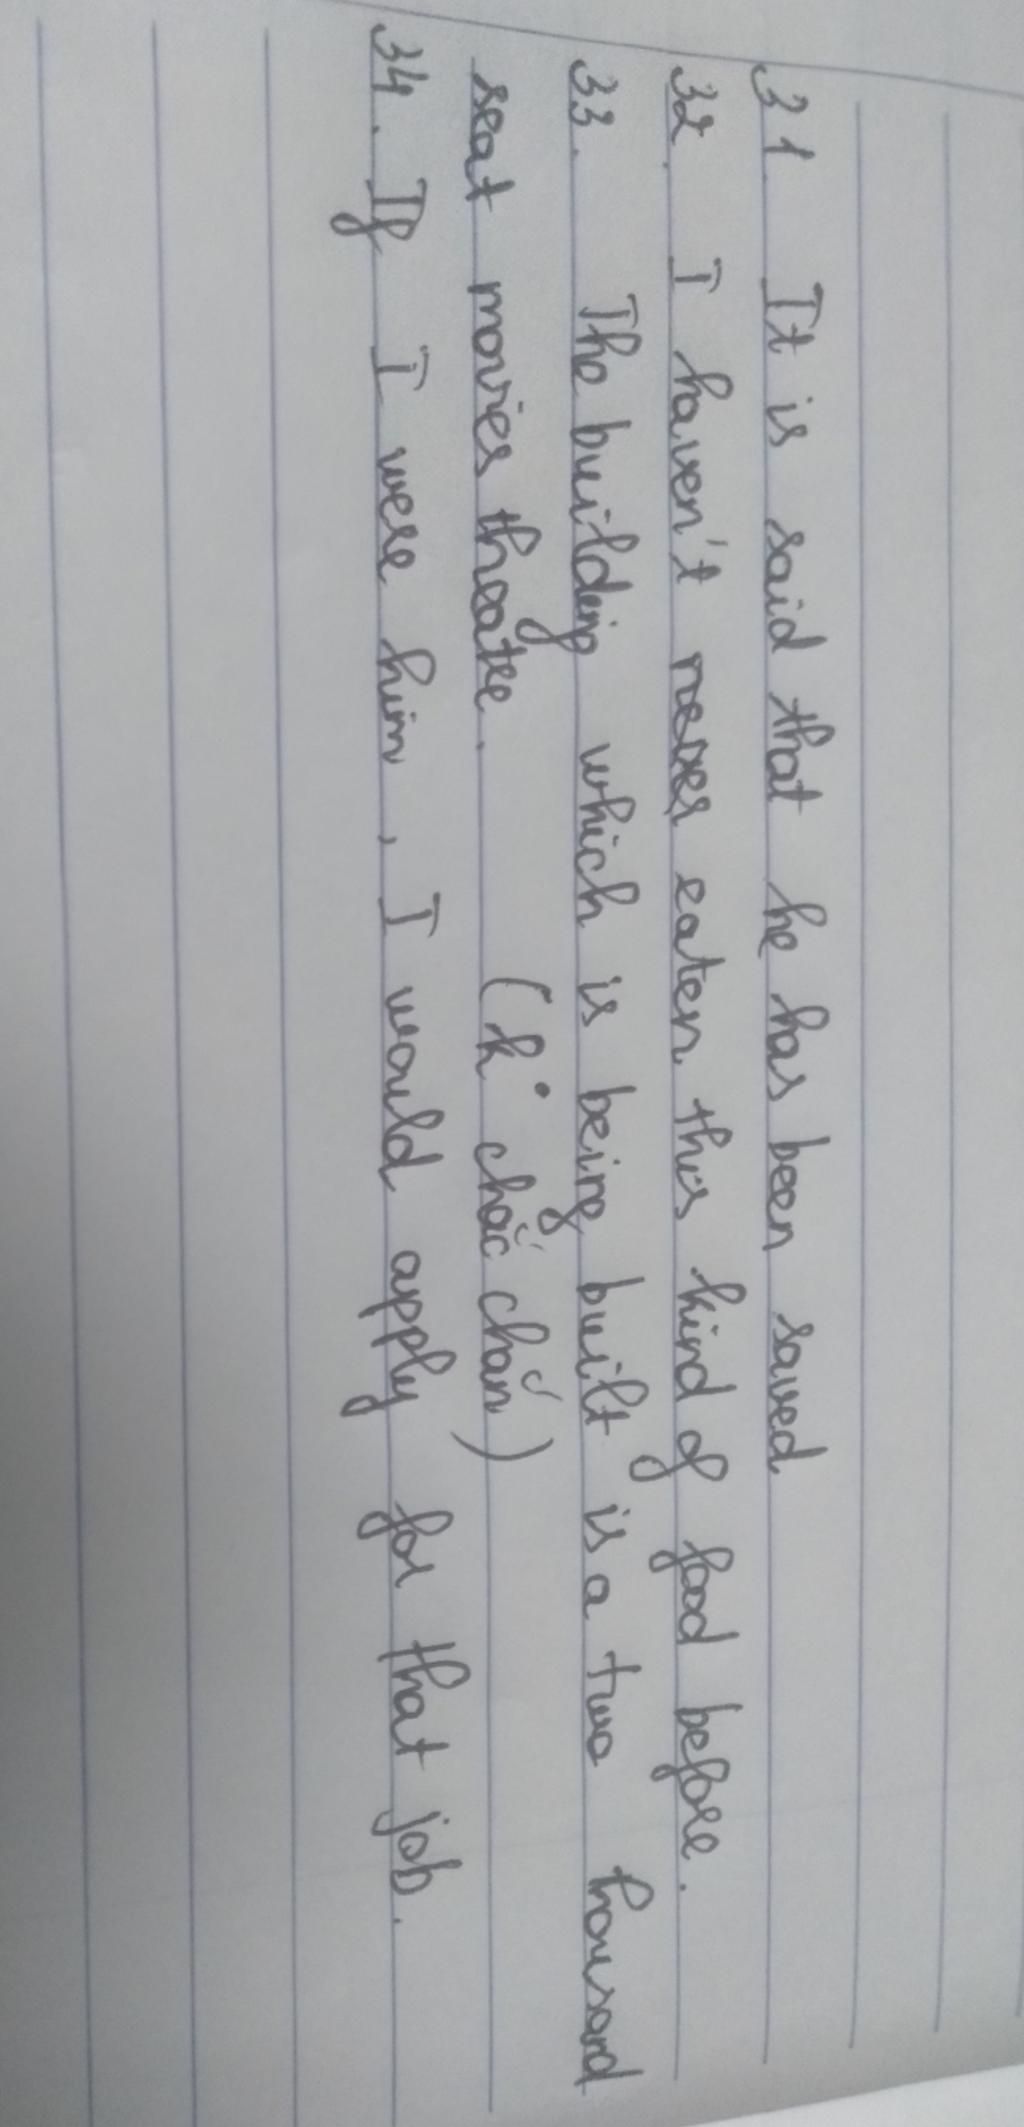 31. It is said that he has been saved
32. I haven't never eaten this kind of food before.
33. The building which is being built is a two thousand
seat movies theatre. (k° chắc chắn)
34. If I were him, I would apply for that job.